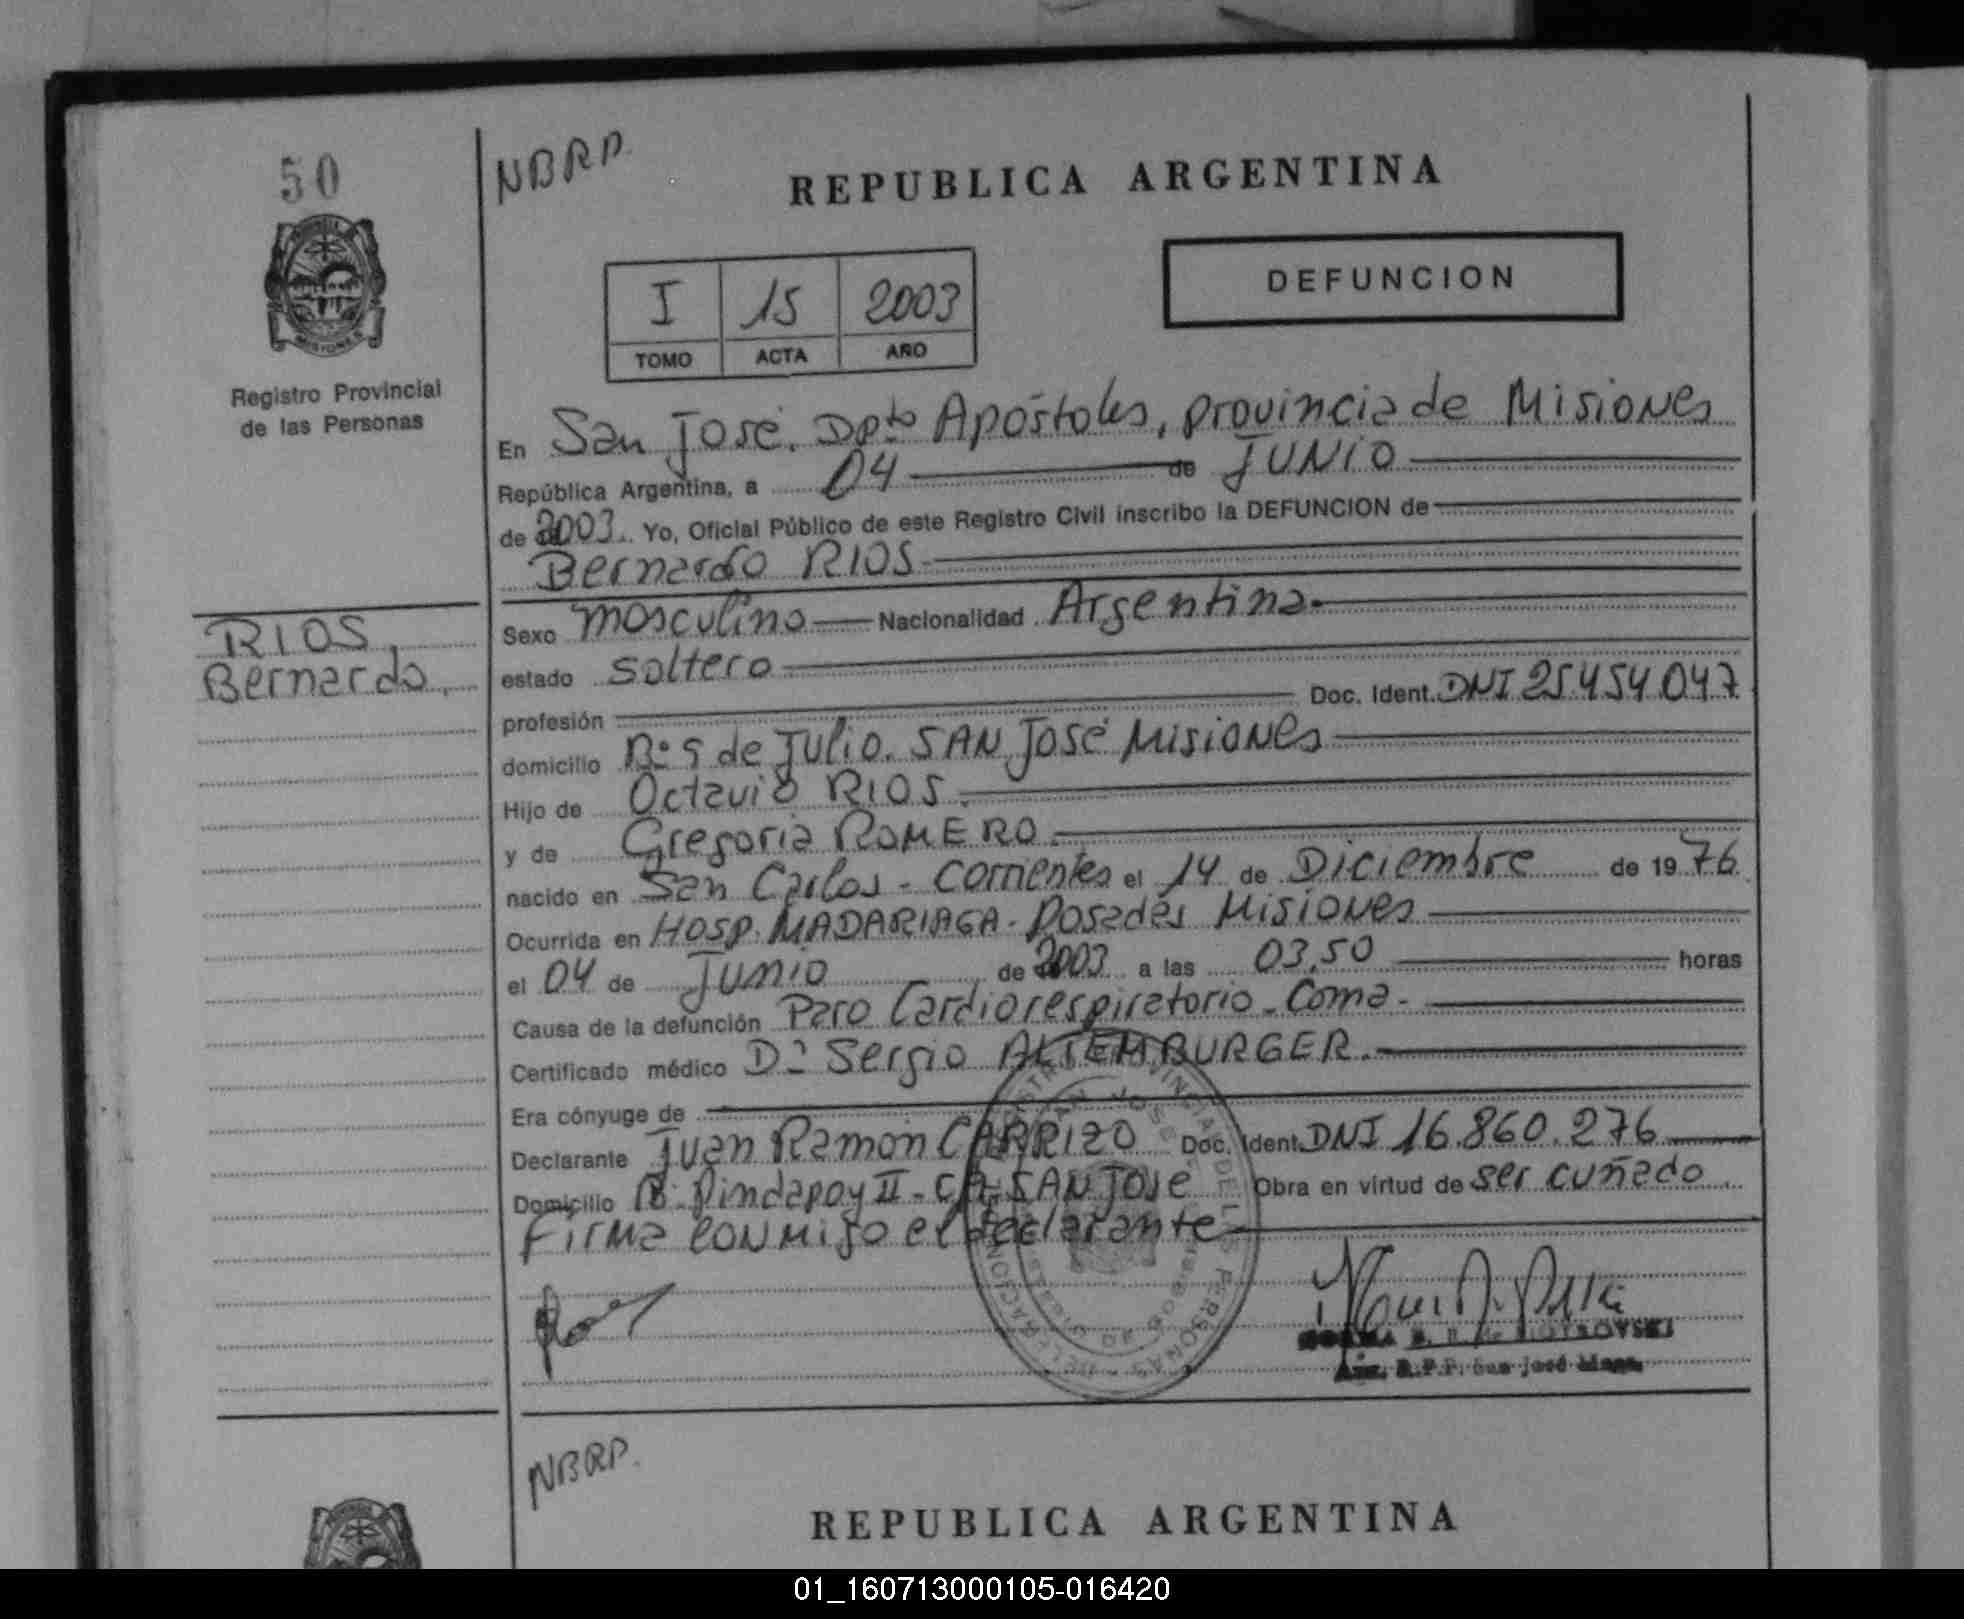 50
NBRP.
REPUBLICA ARGENTINA
MISIONES
Registro Provincial
de las Personas
I 15 2003
TOMO ACTA AÑO
DEFUNCION
En San José. Dpto Apóstoles, provincia de Misiones
República Argentina, a 04 de JUNIO
de 2003. Yo, Oficial Público de este Registro Civil inscribo la DEFUNCION de
Bernardo RIOS
RIOS,
Bernardo.
Sexo masculino Nacionalidad Argentina
estado soltero
profesión Doc. Ident. DNI 25.454.047
domicilio B: 9 de Julio. SAN José Misiones
Hijo de Octavio RIOS.
y de Gregoria ROMERO.
nacido en San Carlos - Corrientes el 14 de Diciembre de 1976
Ocurrida en HOSP. MADARIAGA - Posadas Misiones
el 04 de Junio de 2003 a las 03,50 horas
Causa de la defunción Paro Cardiorespiratorio - Coma.
Certificado médico Dr Sergio ALTEMBURGER.
Era cónyuge de
Declarante Juan Ramón CARRIZO Doc. Ident. DNI 16.860.276
Domicilio B: Pindapoy II - SAN José Obra en virtud de ser cuñado
Firma conmigo el declarante
SAN JOSE
NBRP.
REPUBLICA ARGENTINA
01_160713000105-016420